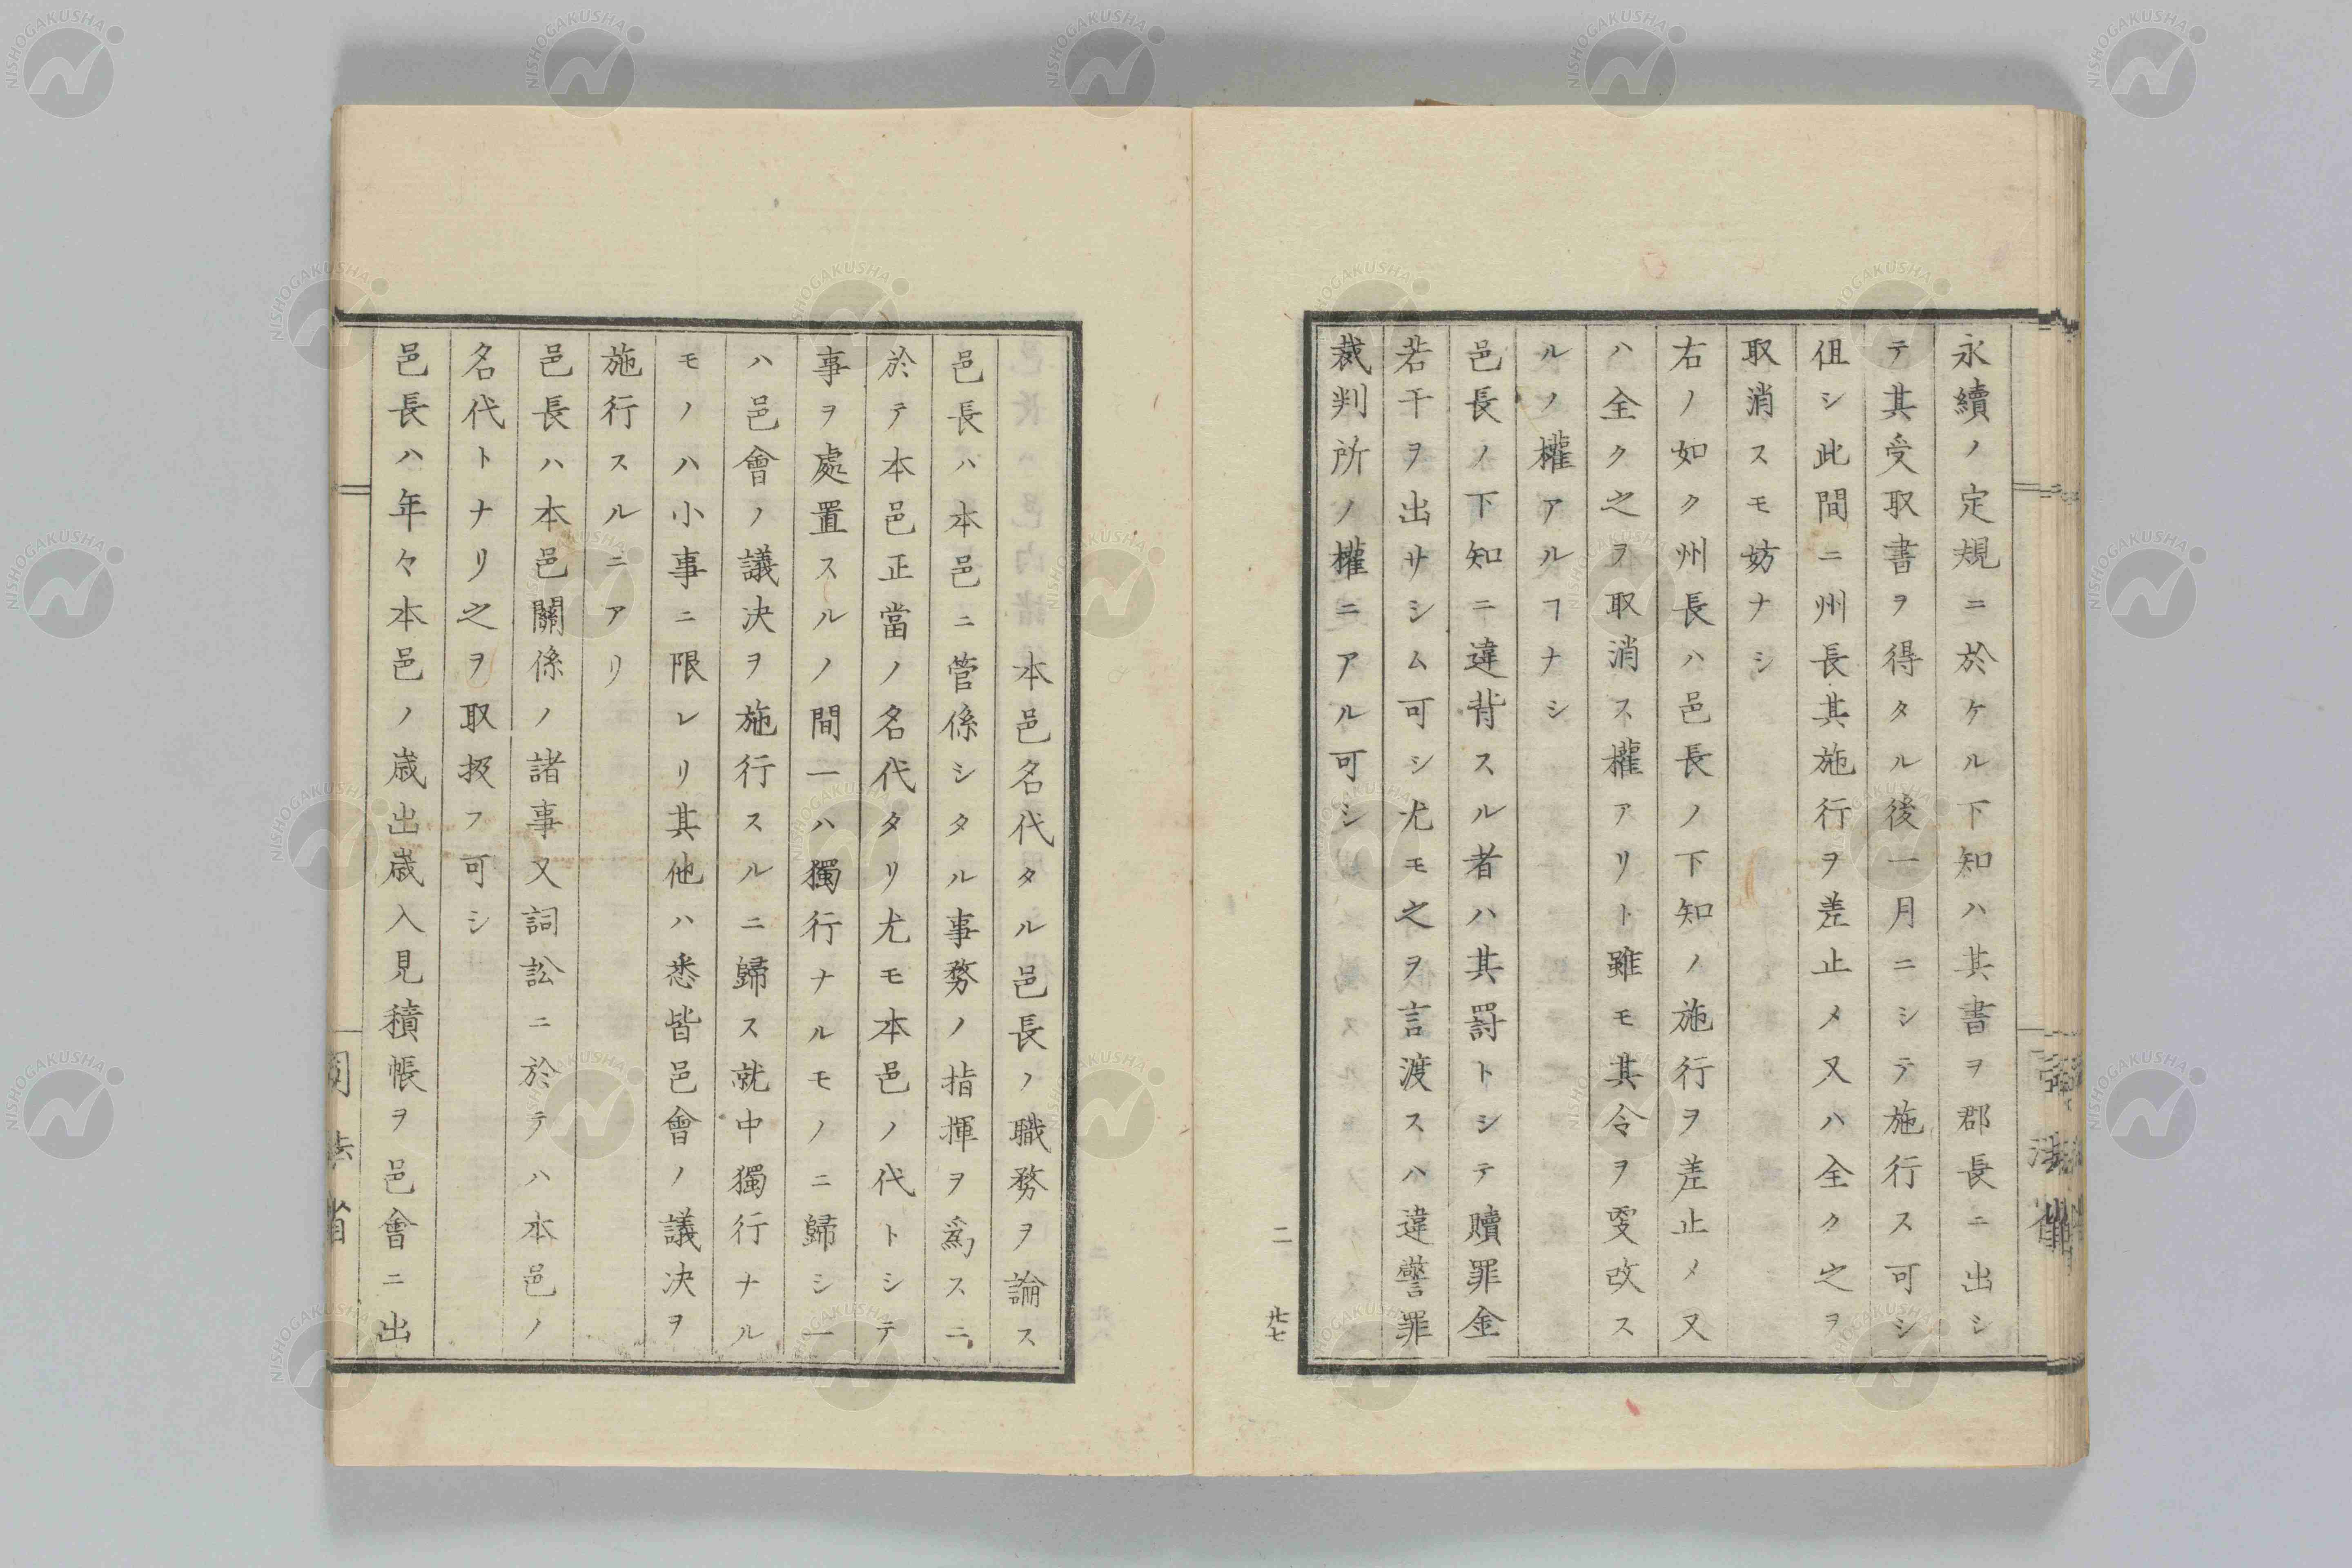 永續ノ定規ニ於ケル下知ハ其書ヲ郡長ニ出シ
テ其受取書ヲ得タル後一月ニシテ施行ス可シ
但シ此間ニ州長其施行ヲ差止メ又ハ全ク之ヲ
取消スモ妨ナシ
右ノ如ク州長ハ邑長ノ下知ノ施行ヲ差止メ又
ハ全ク之ヲ取消ス權アリト雖モ其令ヲ変改ス
ルノ權アルヿナシ
邑長ノ下知ニ違背スル者ハ其罸トシテ贖罪金
若干ヲ出サシム可シ尤モ之ヲ言渡スハ違警罪
裁判所ノ權ニアル可シ
二
廿七
本邑名代タル邑長ノ職務ヲ論ス
邑長ハ本邑ニ管係シタル事務ノ指揮ヲ爲スニ
於テ本邑正當ノ名代タリ尤モ本邑ノ代トシテ
事ヲ處置スルノ間一ハ獨行ナルモノニ歸シ一
ハ邑會ノ議决ヲ施行スルニ歸ス就中獨行ナル
モノハ小事ニ限レリ其他ハ悉皆邑會ノ議决ヲ
施行スルニアリ
邑長ハ本邑關係ノ諸事又詞訟ニ於テハ本邑ノ
名代トナリ之ヲ取扱フ可シ
邑長ハ年々本邑ノ歳出歳入見積帳ヲ邑會ニ出
司法省
NISHOGAKUSHA